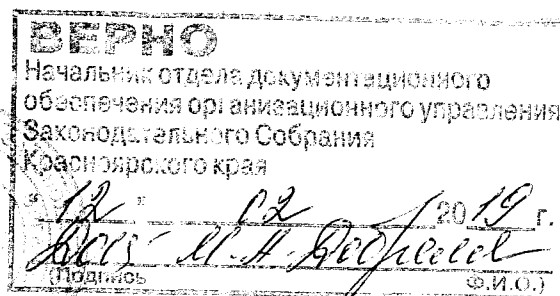 ВЕРНО
Начальник отдела документационного
обеспечения организационного управления
Законодательного Собрания
Красноярского края
"12" 02 2019 г.
М.А.
(Подпись Ф.И.О.)